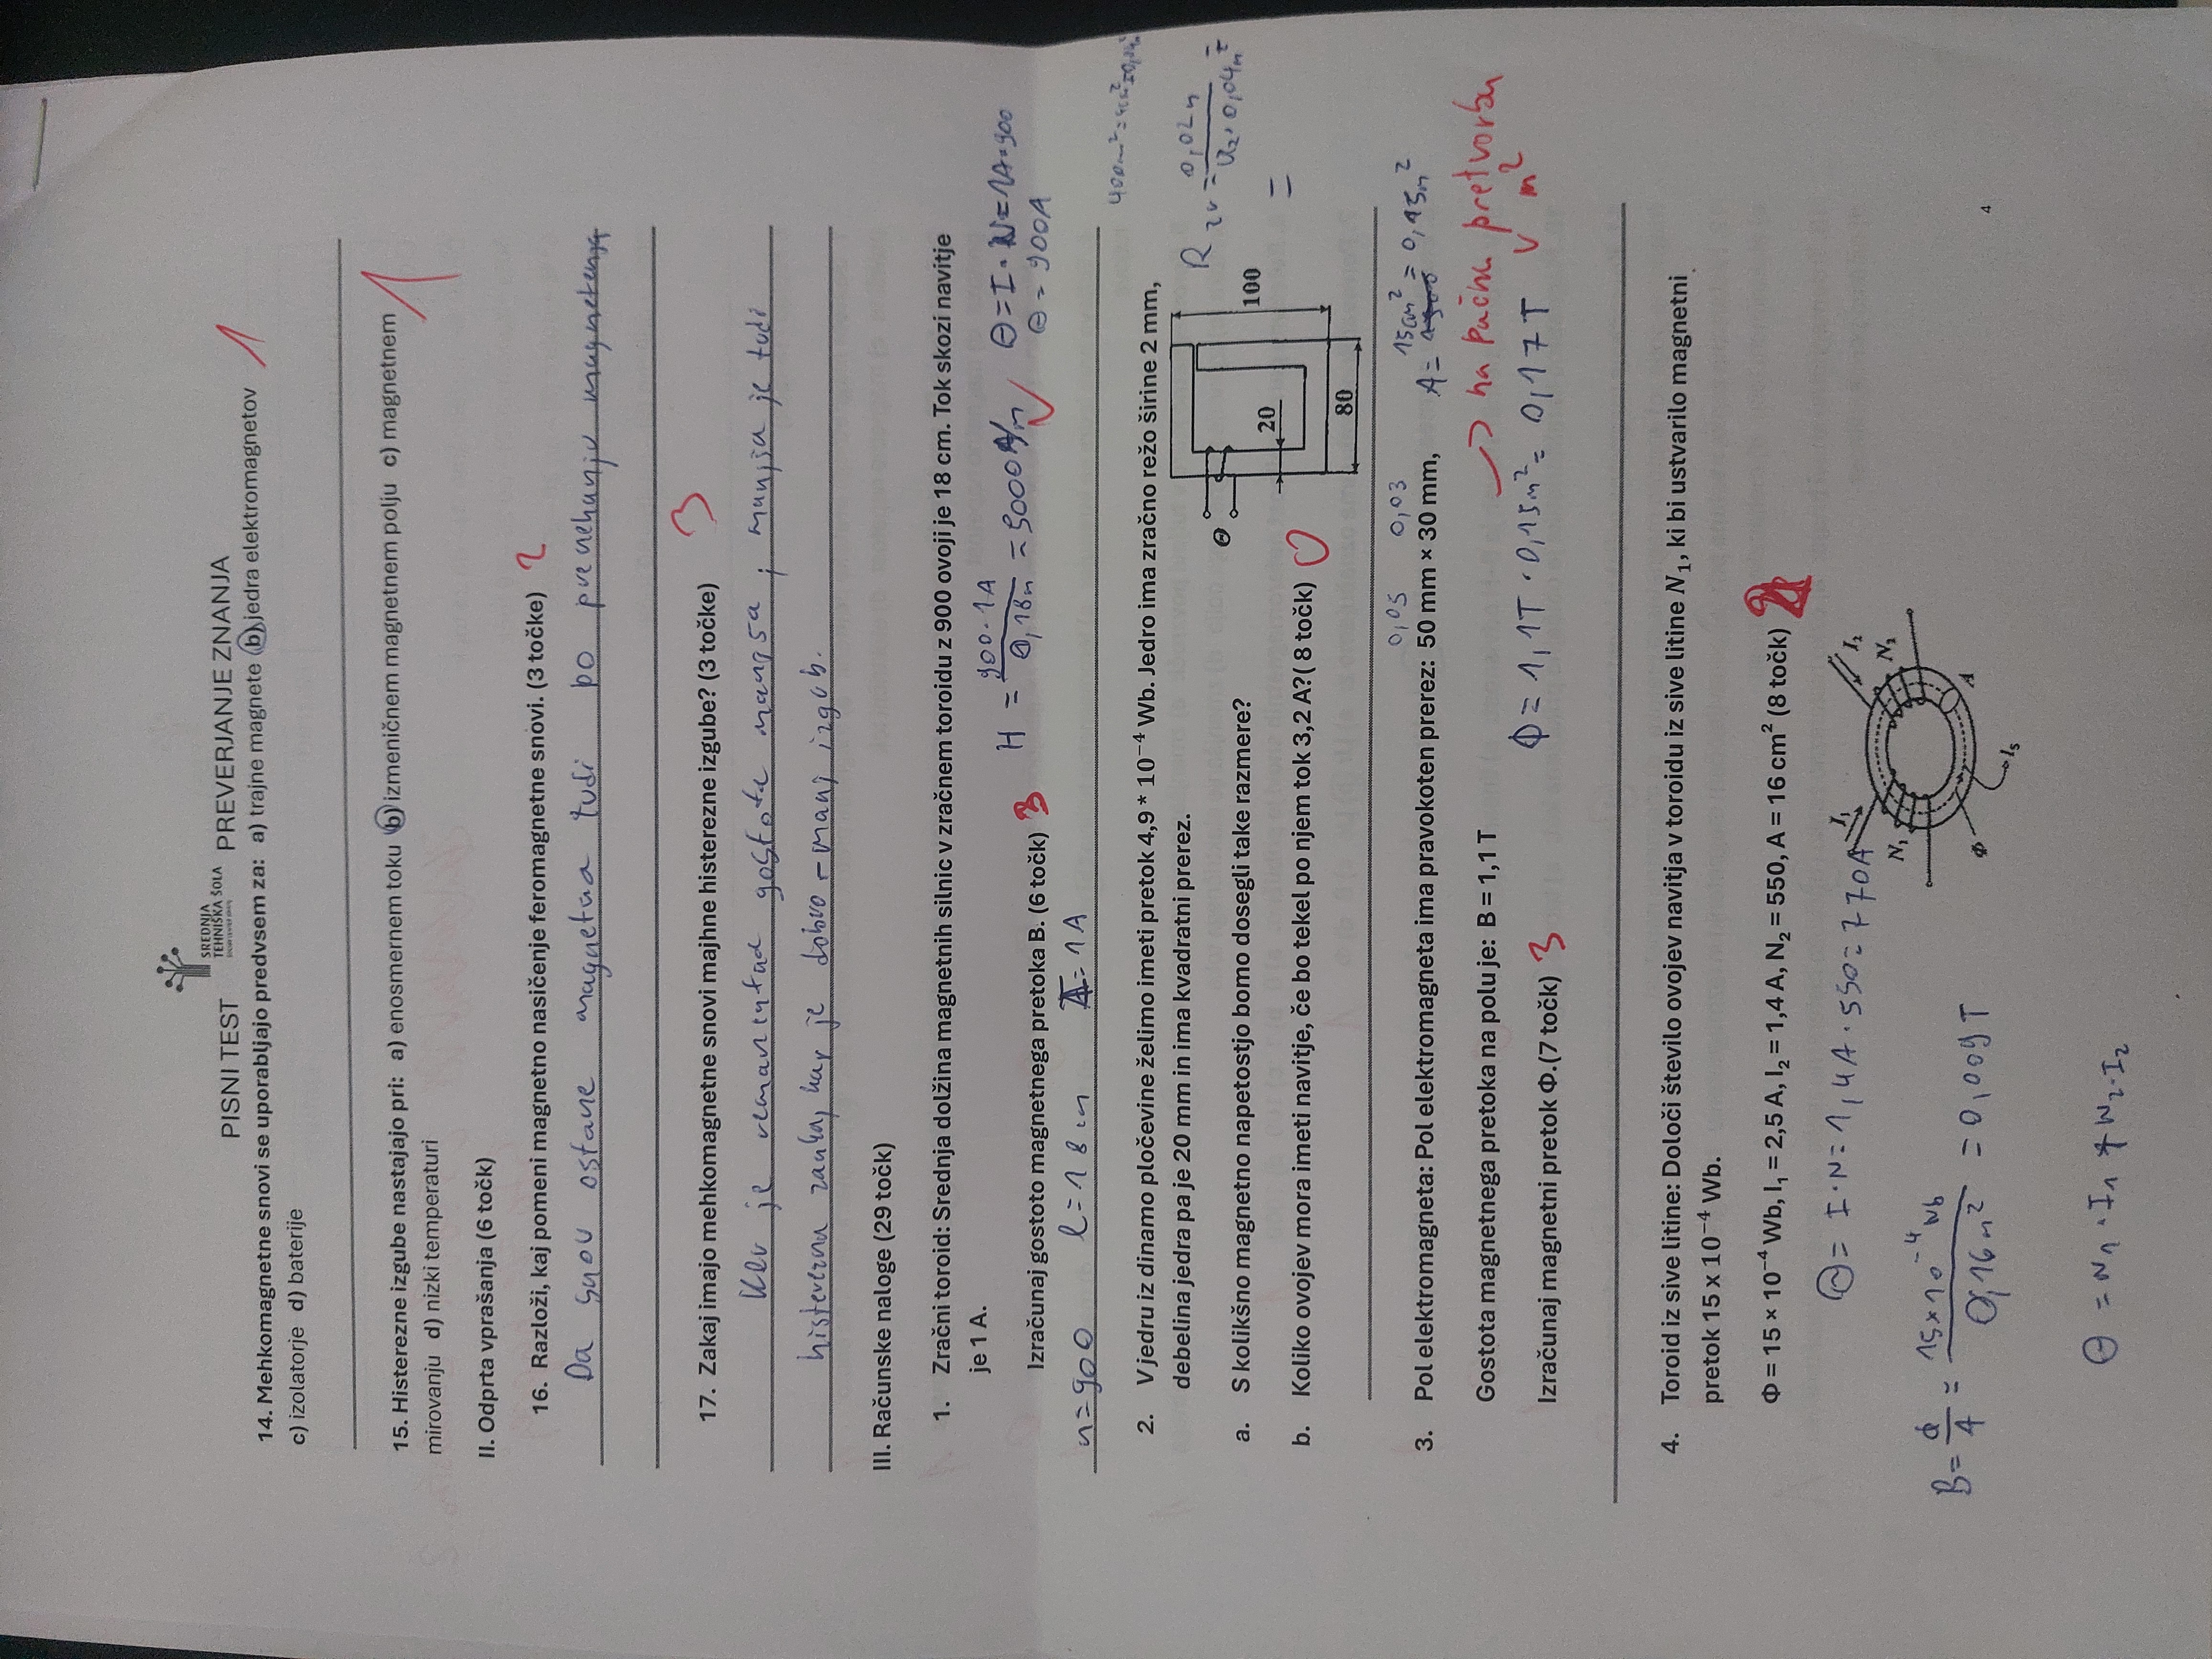 SREDNJA
TEHNIŠKA ŠOLA
PISNI TEST PREVERJANJE ZNANJA
14. Mehkomagnetne snovi se uporabljajo predvsem za: a) trajne magnete b) jedra elektromagnetov
c) izolatorje d) baterije
1
15. Histerezne izgube nastajajo pri: a) enosmernem toku b) izmeničnem magnetnem polju c) magnetnem
mirovanju d) nizki temperaturi
1
II. Odprta vprašanja (6 točk)
16. Razloži, kaj pomeni magnetno nasičenje feromagnetne snovi. (3 točke) 2
Da snov ostane magnetna tudi po prenehanju magnetenja
17. Zakaj imajo mehkomagnetne snovi majhne histerezne izgube? (3 točke) 3
Ker je remanentna gostota manjša, manjša je tudi
histerezna zanka, kar je dobro - manj izgub.
III. Računske naloge (29 točk)
1. Zračni toroid: Srednja dolžina magnetnih silnic v zračnem toroidu z 900 ovoji je 18 cm. Tok skozi navitje
je 1 A.
H = 900·1A / 0,18m = 5000A/m Θ = I·N = 1A·900
Θ = 900A
Izračunaj gostoto magnetnega pretoka B. (6 točk) 3
n=900 l=18cm I=1A
2. V jedru iz dinamo pločevine želimo imeti pretok 4,9 * 10⁻⁴ Wb. Jedro ima zračno režo širine 2 mm,
debelina jedra pa je 20 mm in ima kvadratni prerez.
a. S kolikšno magnetno napetostjo bomo dosegli take razmere?
b. Koliko ovojev mora imeti navitje, če bo tekel po njem tok 3,2 A?( 8 točk) 0
Θ 20 80 100
=
0,05 0,03
3. Pol elektromagneta: Pol elektromagneta ima pravokoten prerez: 50 mm × 30 mm, A = 15cm² = 0,15m²
Gostota magnetnega pretoka na polu je: B = 1,1 T
na pačna pretvorba
v m²
Izračunaj magnetni pretok Φ.(7 točk) 3 Φ = 1,1T · 0,15m² = 0,17T
4. Toroid iz sive litine: Določi število ovojev navitja v toroidu iz sive litine N₁, ki bi ustvarilo magnetni
pretok 15 x 10⁻⁴ Wb.
Φ = 15 × 10⁻⁴ Wb, I₁ = 2,5 A, I₂ = 1,4 A, N₂ = 550, A = 16 cm² (8 točk)
Θ = I·N = 1,4A·550 = 770A
I₁ N₁ I₂ N₂ Φ A lₛ
B = Φ/A = 15×10⁻⁴ Wb / 0,16m² = 0,009T
Θ = N₁·I₁ + N₂·I₂
4